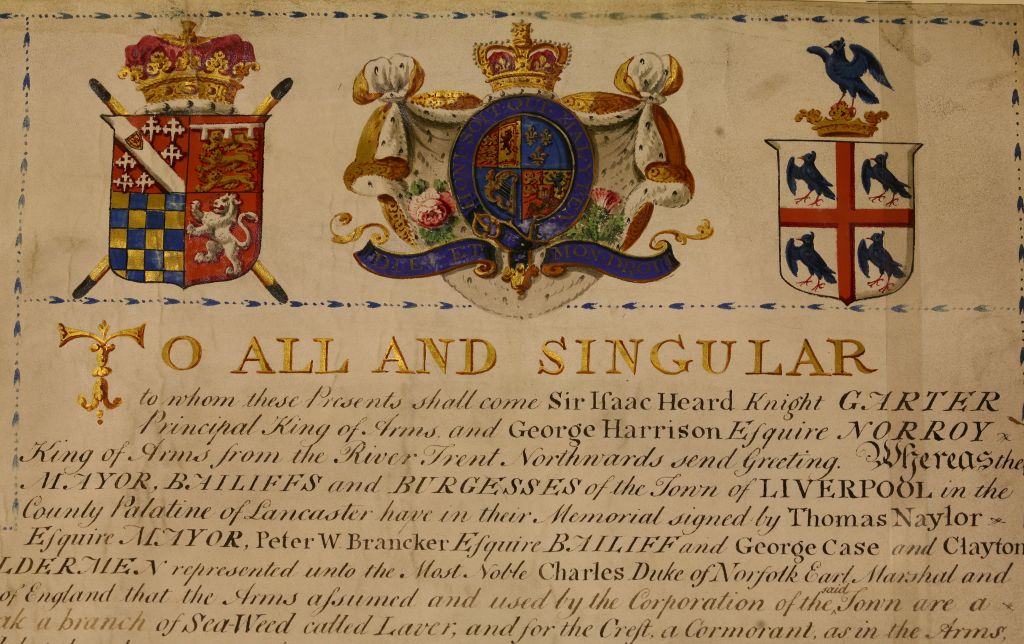 HONI·SOIT·QUI·MAL·Y·PENSE
DIEU ET MON DROIT
TO ALL AND SINGULAR
to whom these Presents shall come Sir Iſaac Heard Knight GARTER
Principal King of Arms, and George Harrison Eſquire NORROY
King of Arms from the River Trent Northwards send Greeting. Whereas the
MAYOR, BAILIFFS and BURGESSES of the Town of LIVERPOOL in the
County Palatine of Lancaster have in their Memorial signed by Thomas Naylor
Eſquire MAYOR, Peter W. Brancker Eſquire BAILIFF and George Case and Clayton
LDERMEN represented unto the Most Noble Charles Duke of Norfolk Earl Marshal and
of England that the Arms aſsumed and used by the Corporation of the said Town are a
ak a branch of Sea-Weed called Laver, and for the Creſt, a Cormorant, as in the Arms,